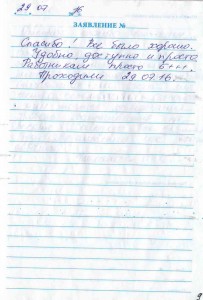 29 07
ЗАЯВЛЕНИЕ №
Спасибо! Все было хорошо.
Удобно, доступно и просто
Работникам просто 5++!
Проходили 29.07.16.